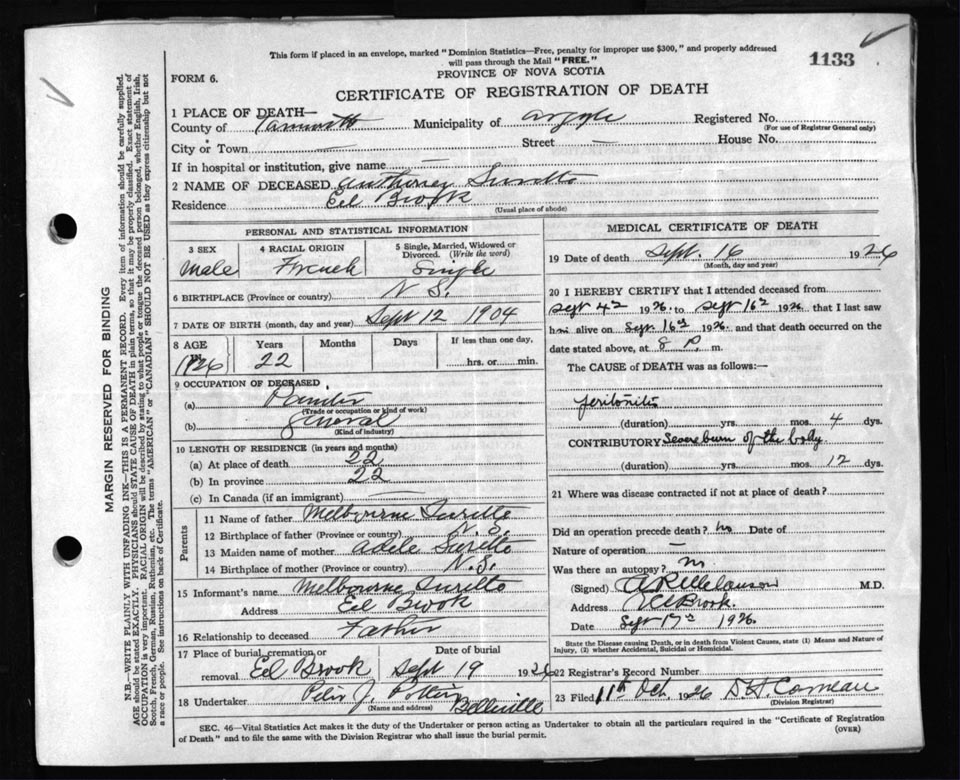 This form if placed in an envelope, marked "Dominion Statistics—Free, penalty for improper use $300," and properly addressed
will pass through the Mail "FREE."
1133
PROVINCE OF NOVA SCOTIA
FORM 6.
CERTIFICATE OF REGISTRATION OF DEATH
1 PLACE OF DEATH—
County of Yarmouth Municipality of Argyle Registered No.
(For use of Registrar General only)
City or Town — Street — House No.
If in hospital or institution, give name —
2 NAME OF DECEASED Anthoney Surette
Residence Eel Brook
(Usual place of abode)
PERSONAL AND STATISTICAL INFORMATION
3 SEX 4 RACIAL ORIGIN 5 Single, Married, Widowed or
Divorced. (Write the word)
Male French Single
6 BIRTHPLACE (Province or country) N S.
7 DATE OF BIRTH (month, day and year) Sept 12 1904
8 AGE Years Months Days If less than one day,
1926 22 hrs. or min.
9 OCCUPATION OF DECEASED
(a) Painter
(Trade or occupation or kind of work)
(b) general
(Kind of industry)
10 LENGTH OF RESIDENCE (in years and months)
(a) At place of death 22
(b) In province 22
(c) In Canada (if an immigrant) —
Parents
11 Name of father Melbourne Surette
12 Birthplace of father (Province or country) N. S.
13 Maiden name of mother Adele Surette
14 Birthplace of mother (Province or country) N.S.
15 Informant's name Melbourne Surette
Address Eel Brook
16 Relationship to deceased Father
17 Place of burial, cremation or Date of burial
removal Eel Brook Sept 19 1926
18 Undertaker J. Pottier Belleville
(Name and address)
MEDICAL CERTIFICATE OF DEATH
19 Date of death Sept. 16 1926
(Month, day and year)
20 I HEREBY CERTIFY that I attended deceased from
Sept 4th 1926 to Sept 16th 1926, that I last saw
him alive on Sept. 16th 1926, and that death occurred on the
date stated above, at 8 P. m.
The CAUSE of DEATH was as follows:—
peritonitis
(duration) yrs. mos. 4 dys.
CONTRIBUTORY Severe burn of the body
(duration) yrs. mos. 12 dys.
21 Where was disease contracted if not at place of death?
Did an operation precede death? no Date of
Nature of operation —
Was there an autopsy? no
(Signed) M.D.
Address Eel Brook.
Date Sept 17th 1926.
State the Disease causing Death, or in death from Violent Causes, state (1) Means and Nature of
Injury, (2) whether Accidental, Suicidal or Homicidal.
22 Registrar's Record Number
23 Filed 11th Oct. 1926 Comeau
(Division Registrar)
SEC. 46—Vital Statistics Act makes it the duty of the Undertaker or person acting as Undertaker to obtain all the particulars required in the "Certificate of Registration
of Death" and to file the same with the Division Registrar who shall issue the burial permit.
(OVER)
MARGIN RESERVED FOR BINDING
N.B.—WRITE PLAINLY WITH UNFADING INK—THIS IS A PERMANENT RECORD. Every item of information should be carefully supplied.
AGE should be stated EXACTLY. PHYSICIANS should STATE CAUSE OF DEATH in plain terms, so that it may be properly classified. Exact statement of
OCCUPATION is very important. RACIAL ORIGIN will be described by stating to what people or tongue the deceased person belonged, whether English, Irish,
Scotch, French, German, Russian, Ruthenian, etc. The terms "AMERICAN" or "CANADIAN" SHOULD NOT BE USED as they express citizenship but not
a race or people. See instructions on back of Certificate.